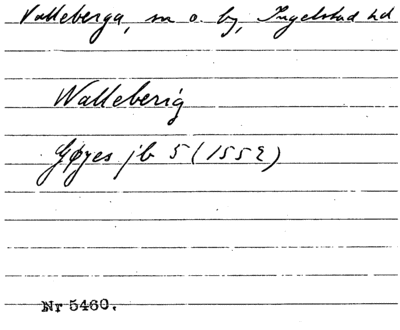 Valleberga, sn o. by, Ingelstad hd
Walleberig
Gøyes jb 5 (1552)
Nr 5460.